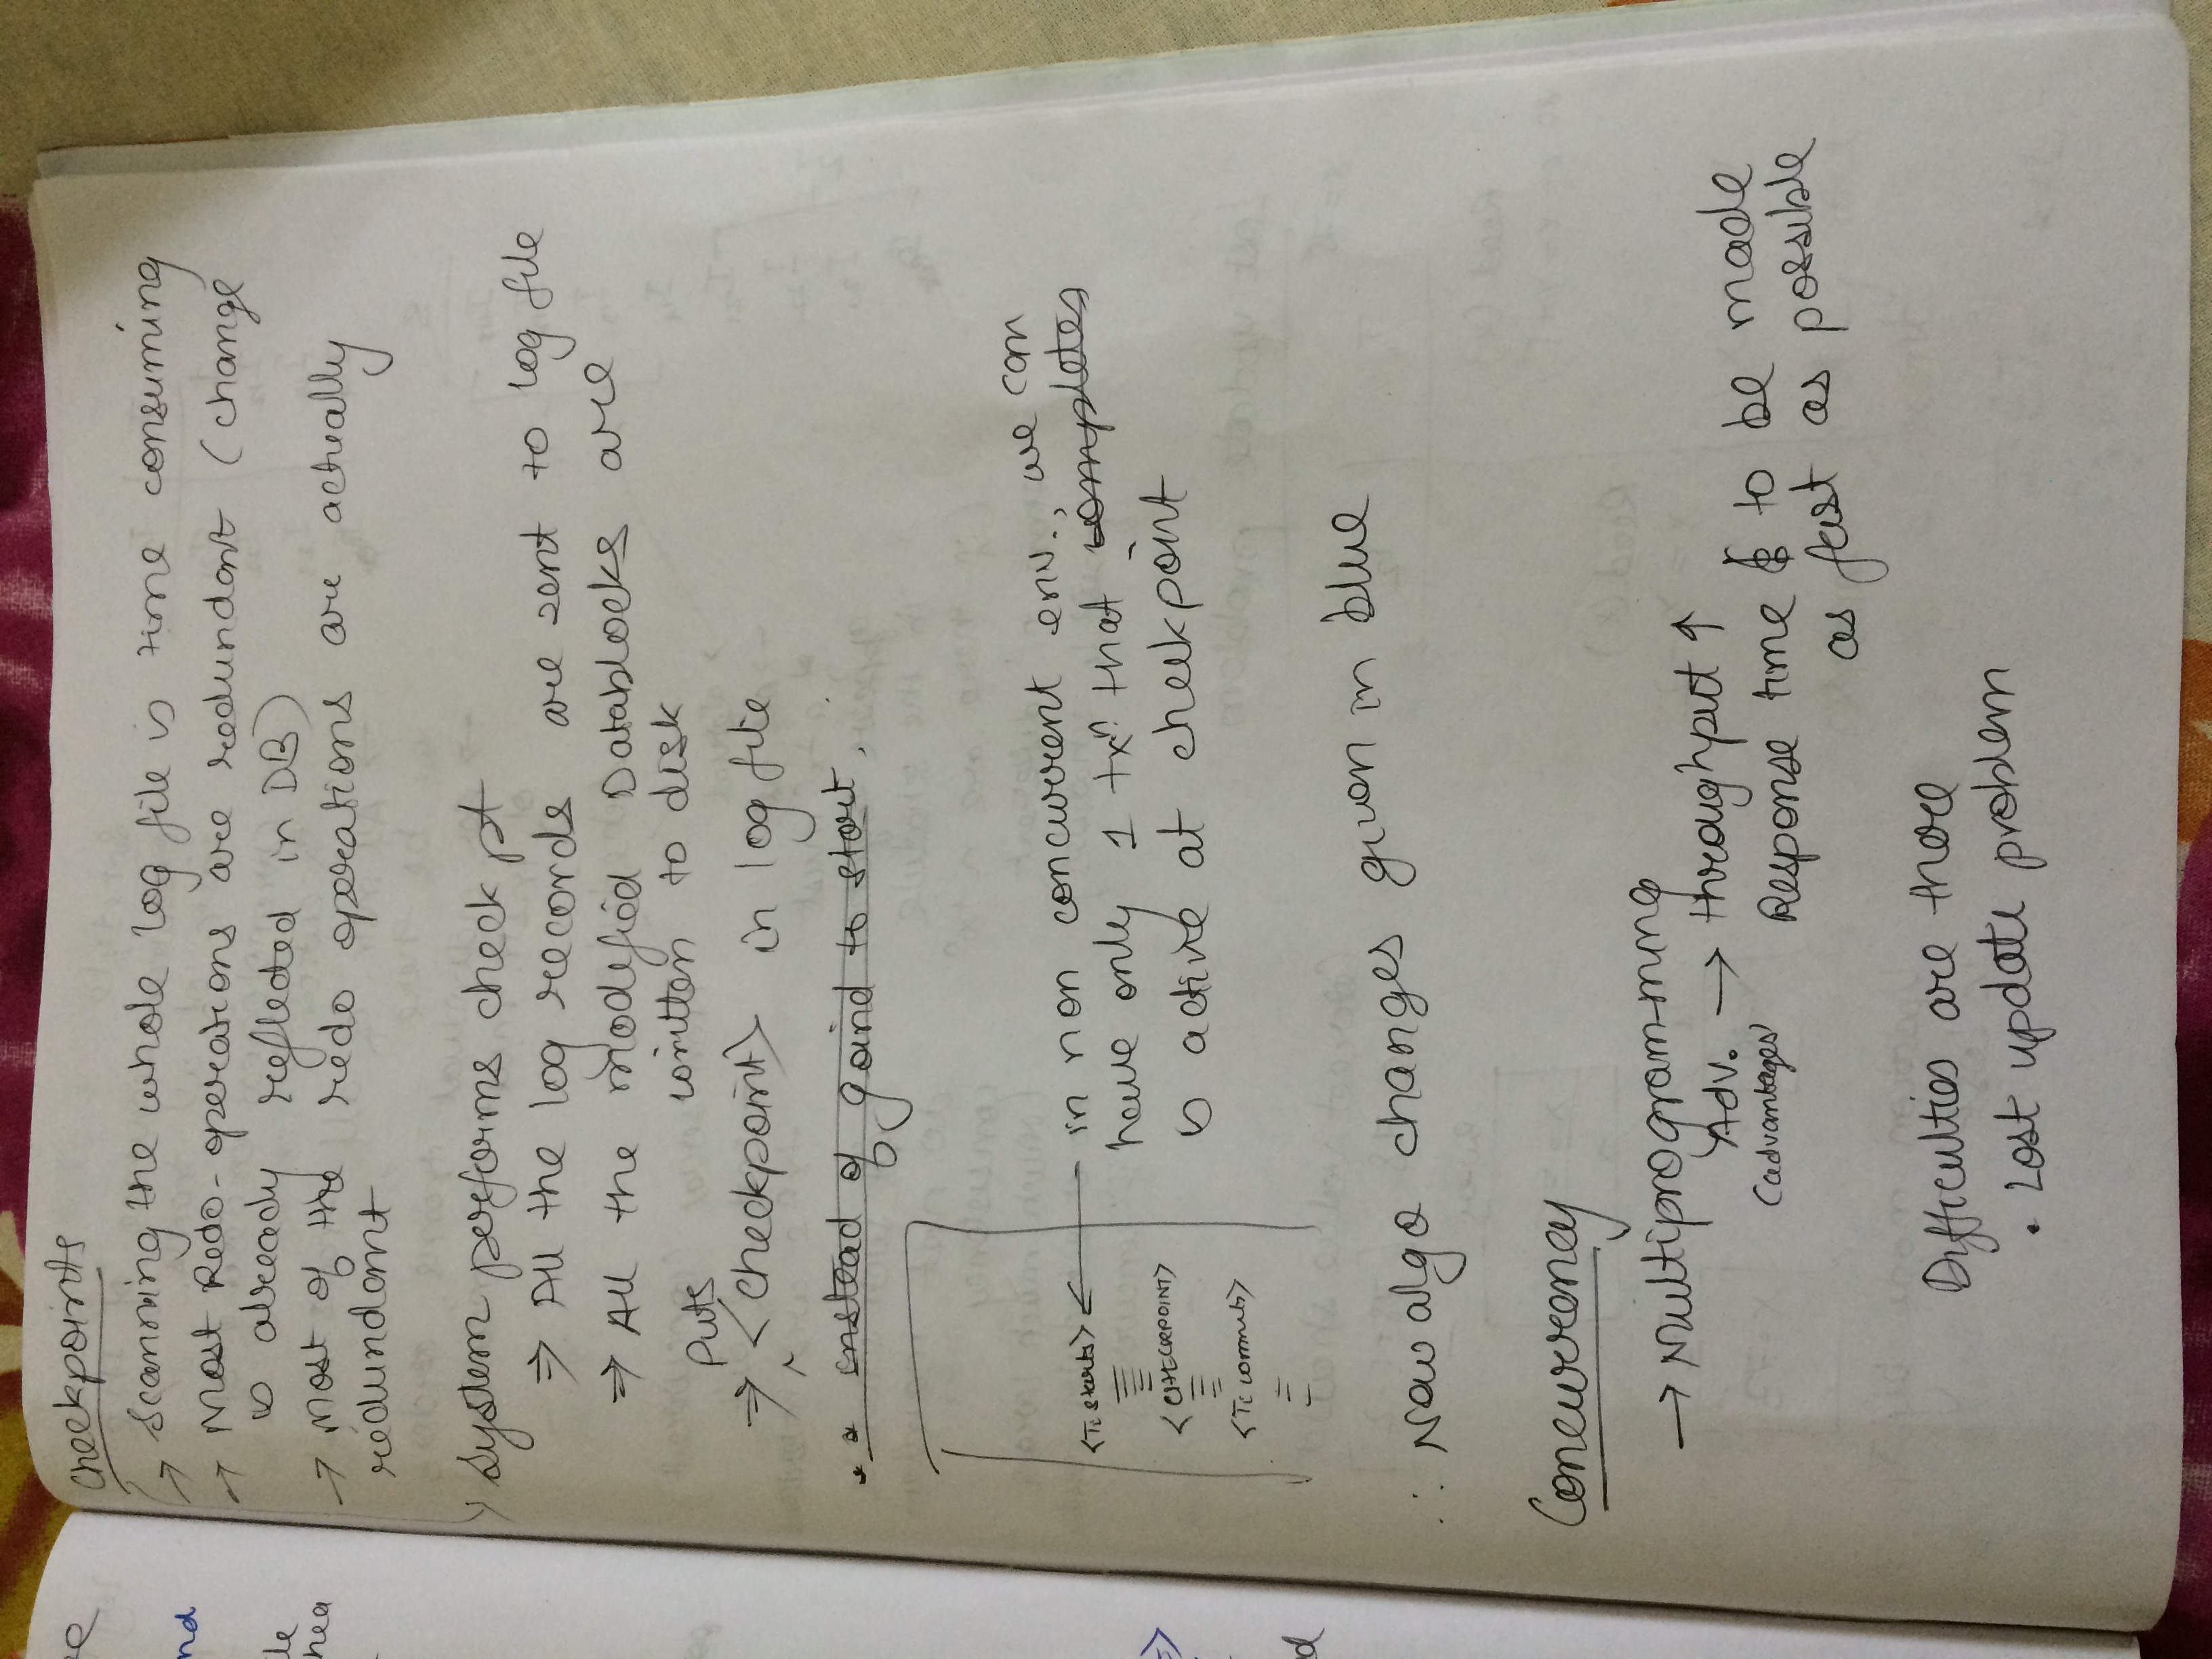 Checkpoints
→ Scanning the whole log file is time consuming
→ Most Redo-operations are redundant (change
is already reflected in DB)
→ Most of the redo operations are actually
redundant
System performs check pt
⇒ All the log records are sent to log file
⇒ All the modified Datablocks are
written to disk
Puts
⇒ <Checkpoint> in log file
instead of goind to start.
<Ti starts> ← in non concurrent env., we can
have only 1 txn that completes
is active at checkpoint
<CHECKPOINT>
<Ti commits>
∴ Now algo changes given in blue
Concurrency
→ Multiprogramming
Adv. → throughput ↑
(advantages) Response time to be made
as fast as possible
Difficulties are there
• Lost update problem